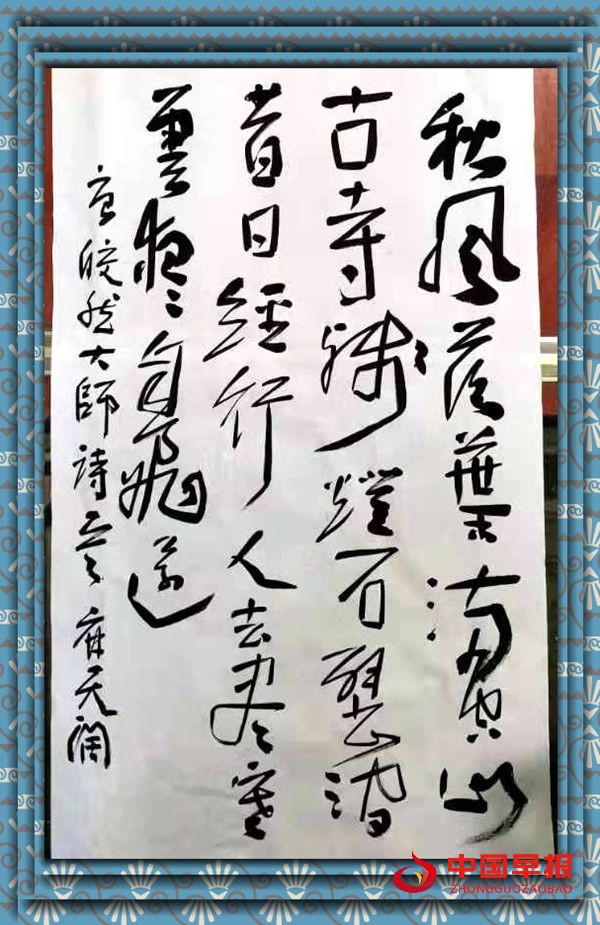 秋風落葉滿空山
古寺殘燈石壁間
昔日經行人去盡寒
雲夜〻自飛還
唐皎然大師詩 麻天
中国早报
ZHONGGUOZAOBAO